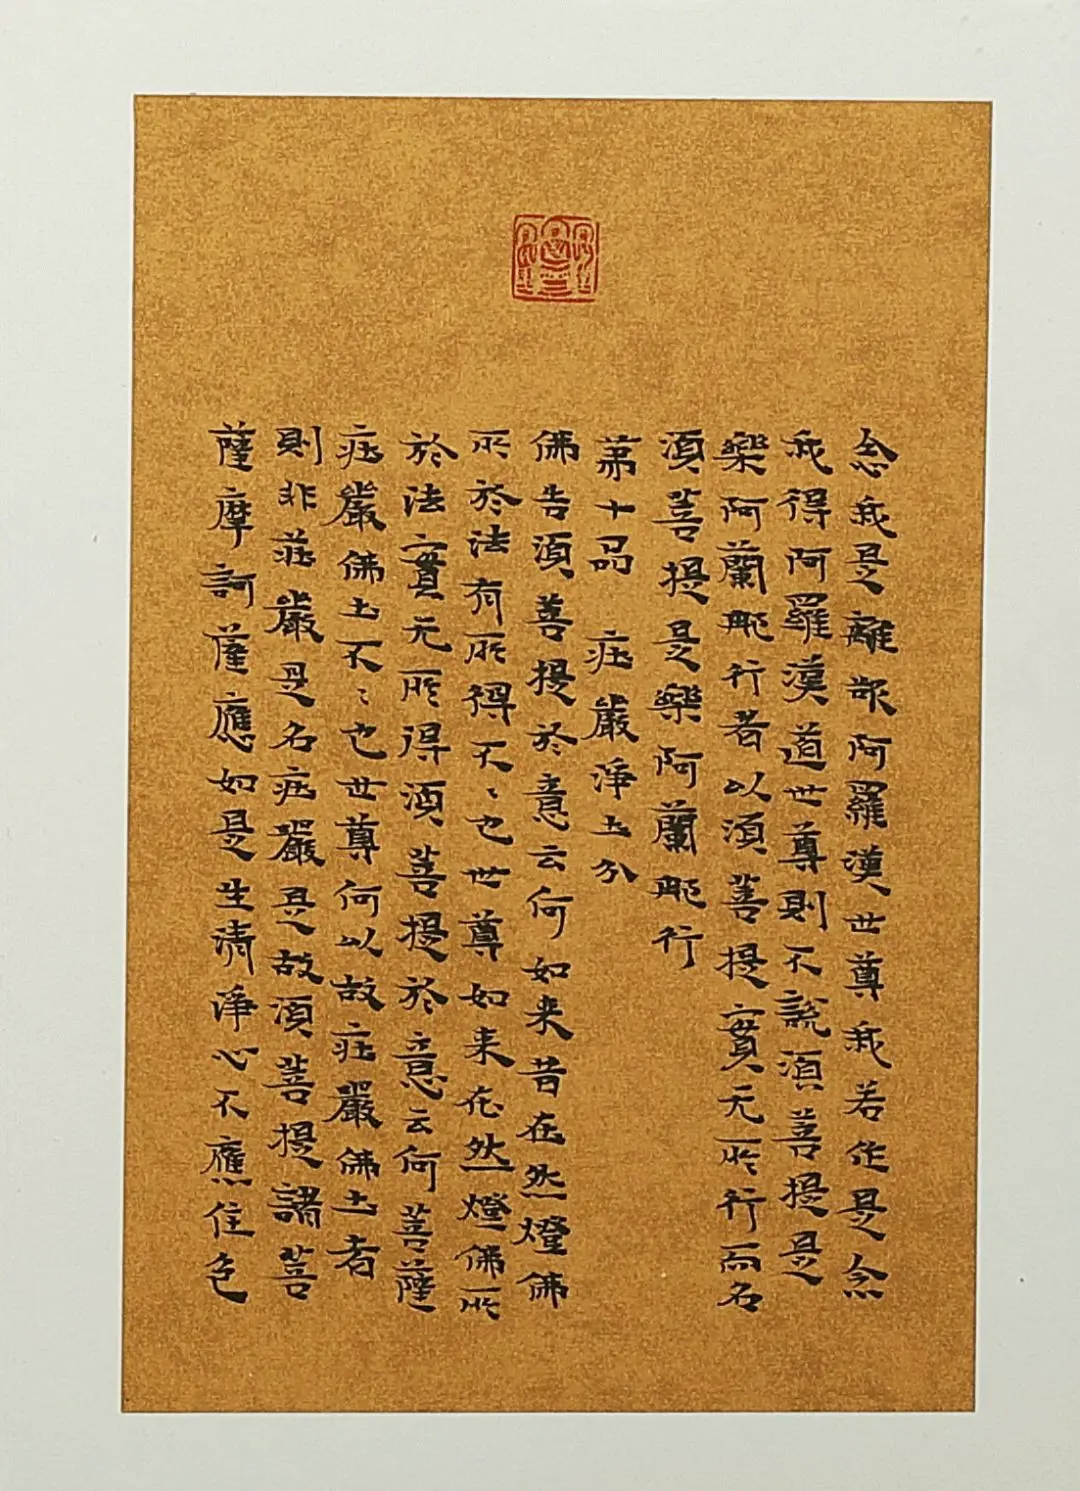 念我是離欲阿羅漢世尊我若作是念
我得阿羅漢道世尊則不說須菩提是
樂阿蘭那行者以須菩提實无所行而名
須菩提是樂阿蘭那行
第十品 莊嚴淨土分
佛告須菩提於意云何如来昔在然燈佛
所於法有所得不〻也世尊如来在然燈佛所
於法實无所得須菩提於意云何菩薩
莊嚴佛土不〻也世尊何以故莊嚴佛土者
則非莊嚴是名莊嚴是故須菩提諸菩
薩摩訶薩應如是生清淨心不應住色